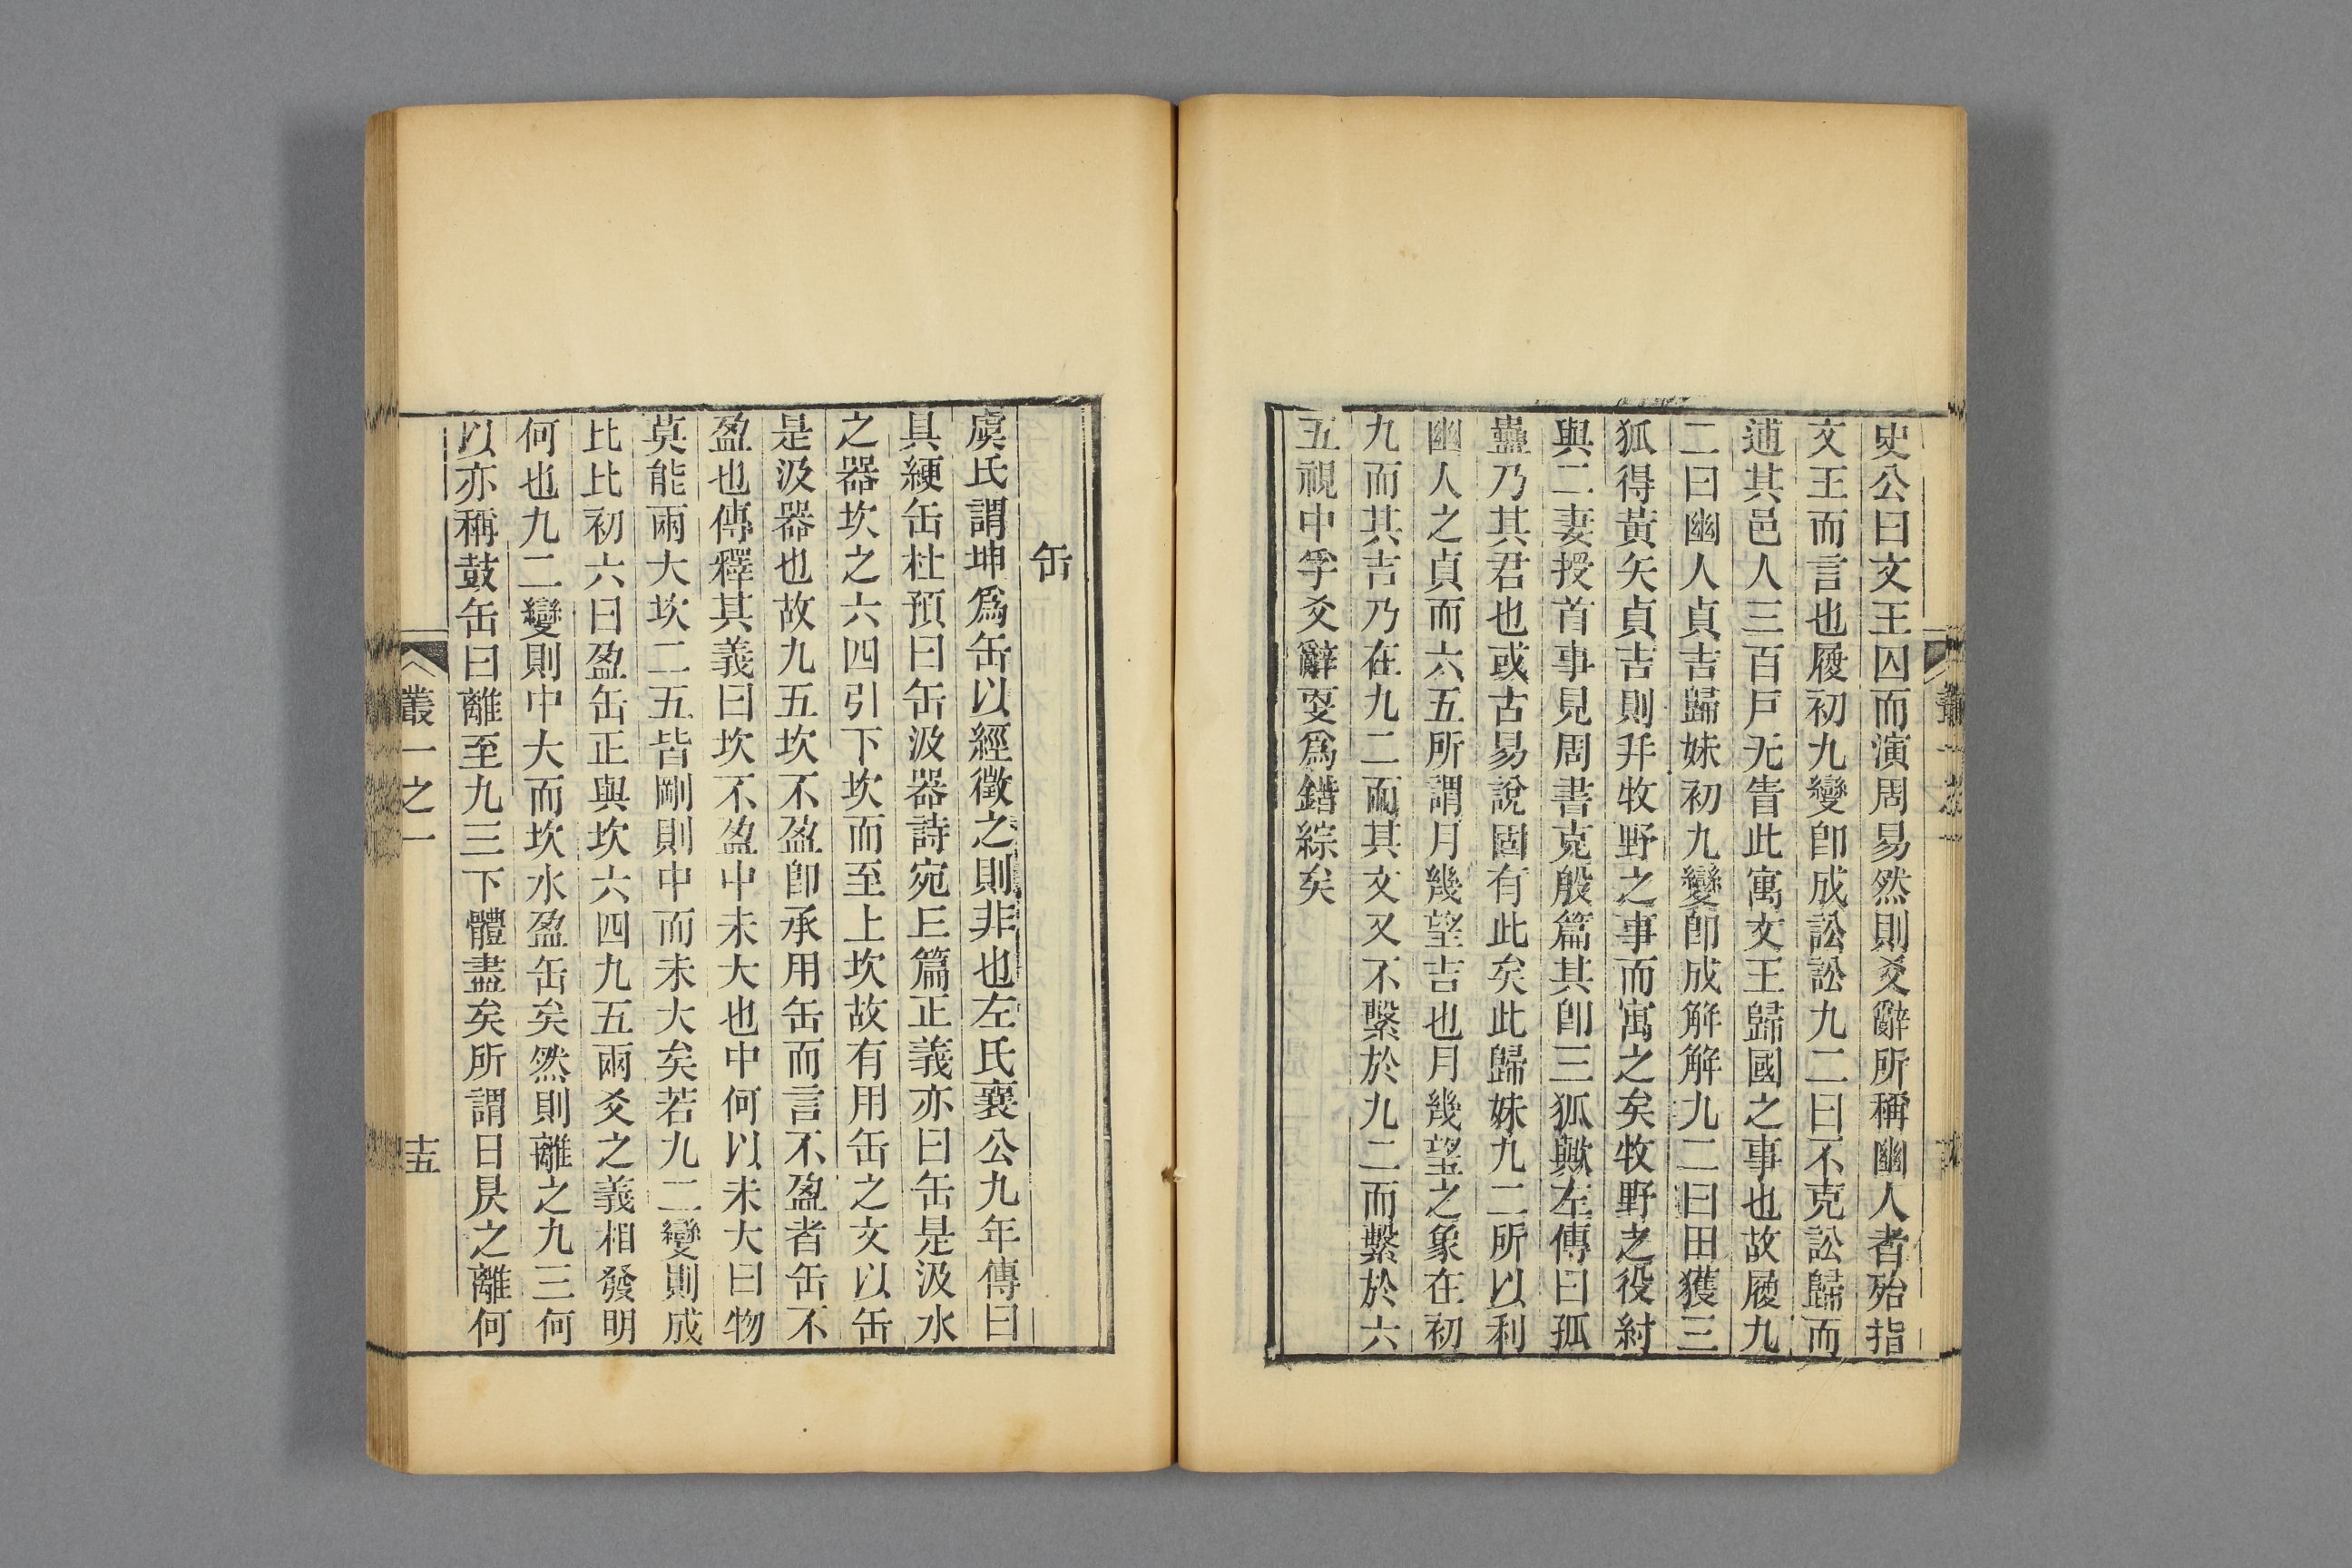 史公曰文王囚而演周易然則爻辭所稱幽人者殆指
文王而言也履初九變卽成訟訟九二曰不克訟歸而
逋其邑人三百戸无眚此寓文王歸國之事也故履九
二曰幽人貞吉歸妹初九變卽成解解九二曰田獲三
狐得黃矢貞吉則幷牧野之事而寓之矣牧野之役紂
與二妻授首事見周書克殷篇其卽三狐歟左傳曰孤
蠱乃其君也或古易說固有此矣此歸妹九二所以利
幽人之貞而六五所謂月幾望吉也月幾望之象在初
九而其吉乃在九二而其文又不繫於九二而繫於六
五視中孚爻辭更爲錯綜矣
缶
虞氏謂坤爲缶以經徵之則非也左氏襄公九年傳曰
具綆缶杜預曰缶汲器詩宛丘篇正義亦曰缶是汲水
之器坎之六四引下坎而至上坎故有用缶之文以缶
是汲器也故九五坎不盈卽承用缶而言不盈者缶不
盈也傳釋其義曰坎不盈中未大也中何以未大曰物
莫能兩大坎二五皆剛則中而未大矣若九二變則成
比比初六曰盈缶正與坎六四九五兩爻之義相發明
何也九二變則中大而坎水盈缶矣然則離之九三何
以亦稱鼓缶曰離至九三下體盡矣所謂日昃之離何
叢一之一
十五